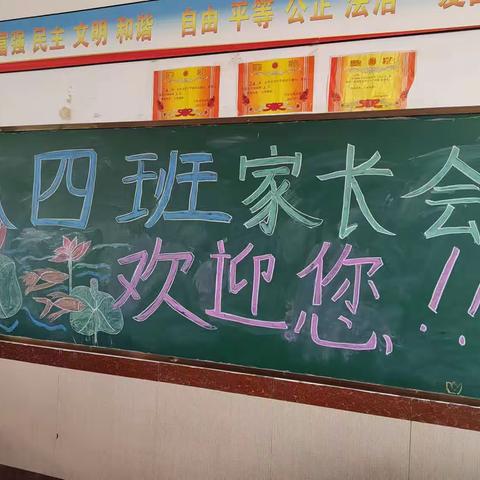 富强 民主 文明 和谐 自由 平等 公正 法治 爱
八四班家长会
欢迎您!!!